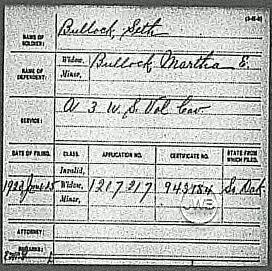 (3-15-6)
NAME OF SOLDIER: Bullock, Seth
NAME OF DEPENDENT: Widow, Bullock, Martha E.
Minor,
SERVICE: A 3 U.S. Vol Cav.
DATE OF FILING. CLASS. APPLICATION NO. CERTIFICATE NO. STATE FROM WHICH FILED.
Invalid,
1923 June 25 Widow, 1217217 942484 So. Dak.
Minor,
ATTORNEY:
REMARKS: